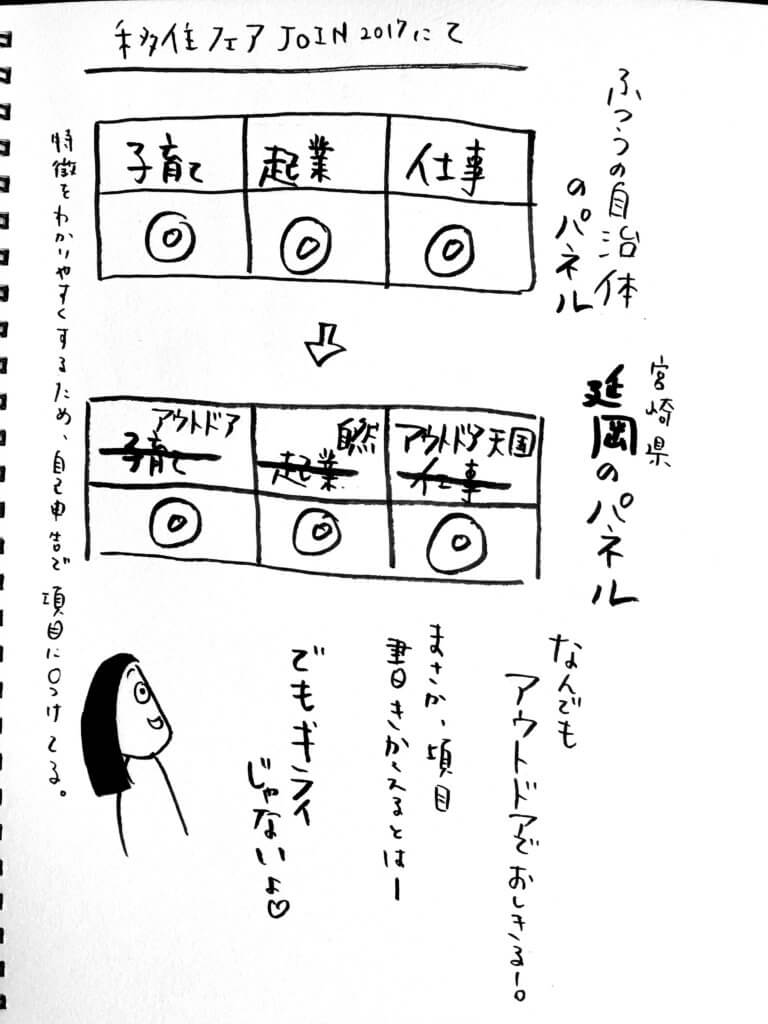 移住フェア JOIN 2017にて
ふつうの自治体
のパネル
子育て 起業 仕事
◎ ◎ ◎
特徴をわかりやすくするため、自己申告で項目に○つけてる。
⇩
宮崎県
延岡のパネル
アウトドア 自然 アウトドア天国
子育て 起業 仕事
◎ ◎ ◎
なんでも
アウトドアでおしきるー。
まさか、項目
書きかえるとはー
でもギライ
じゃないよ♡